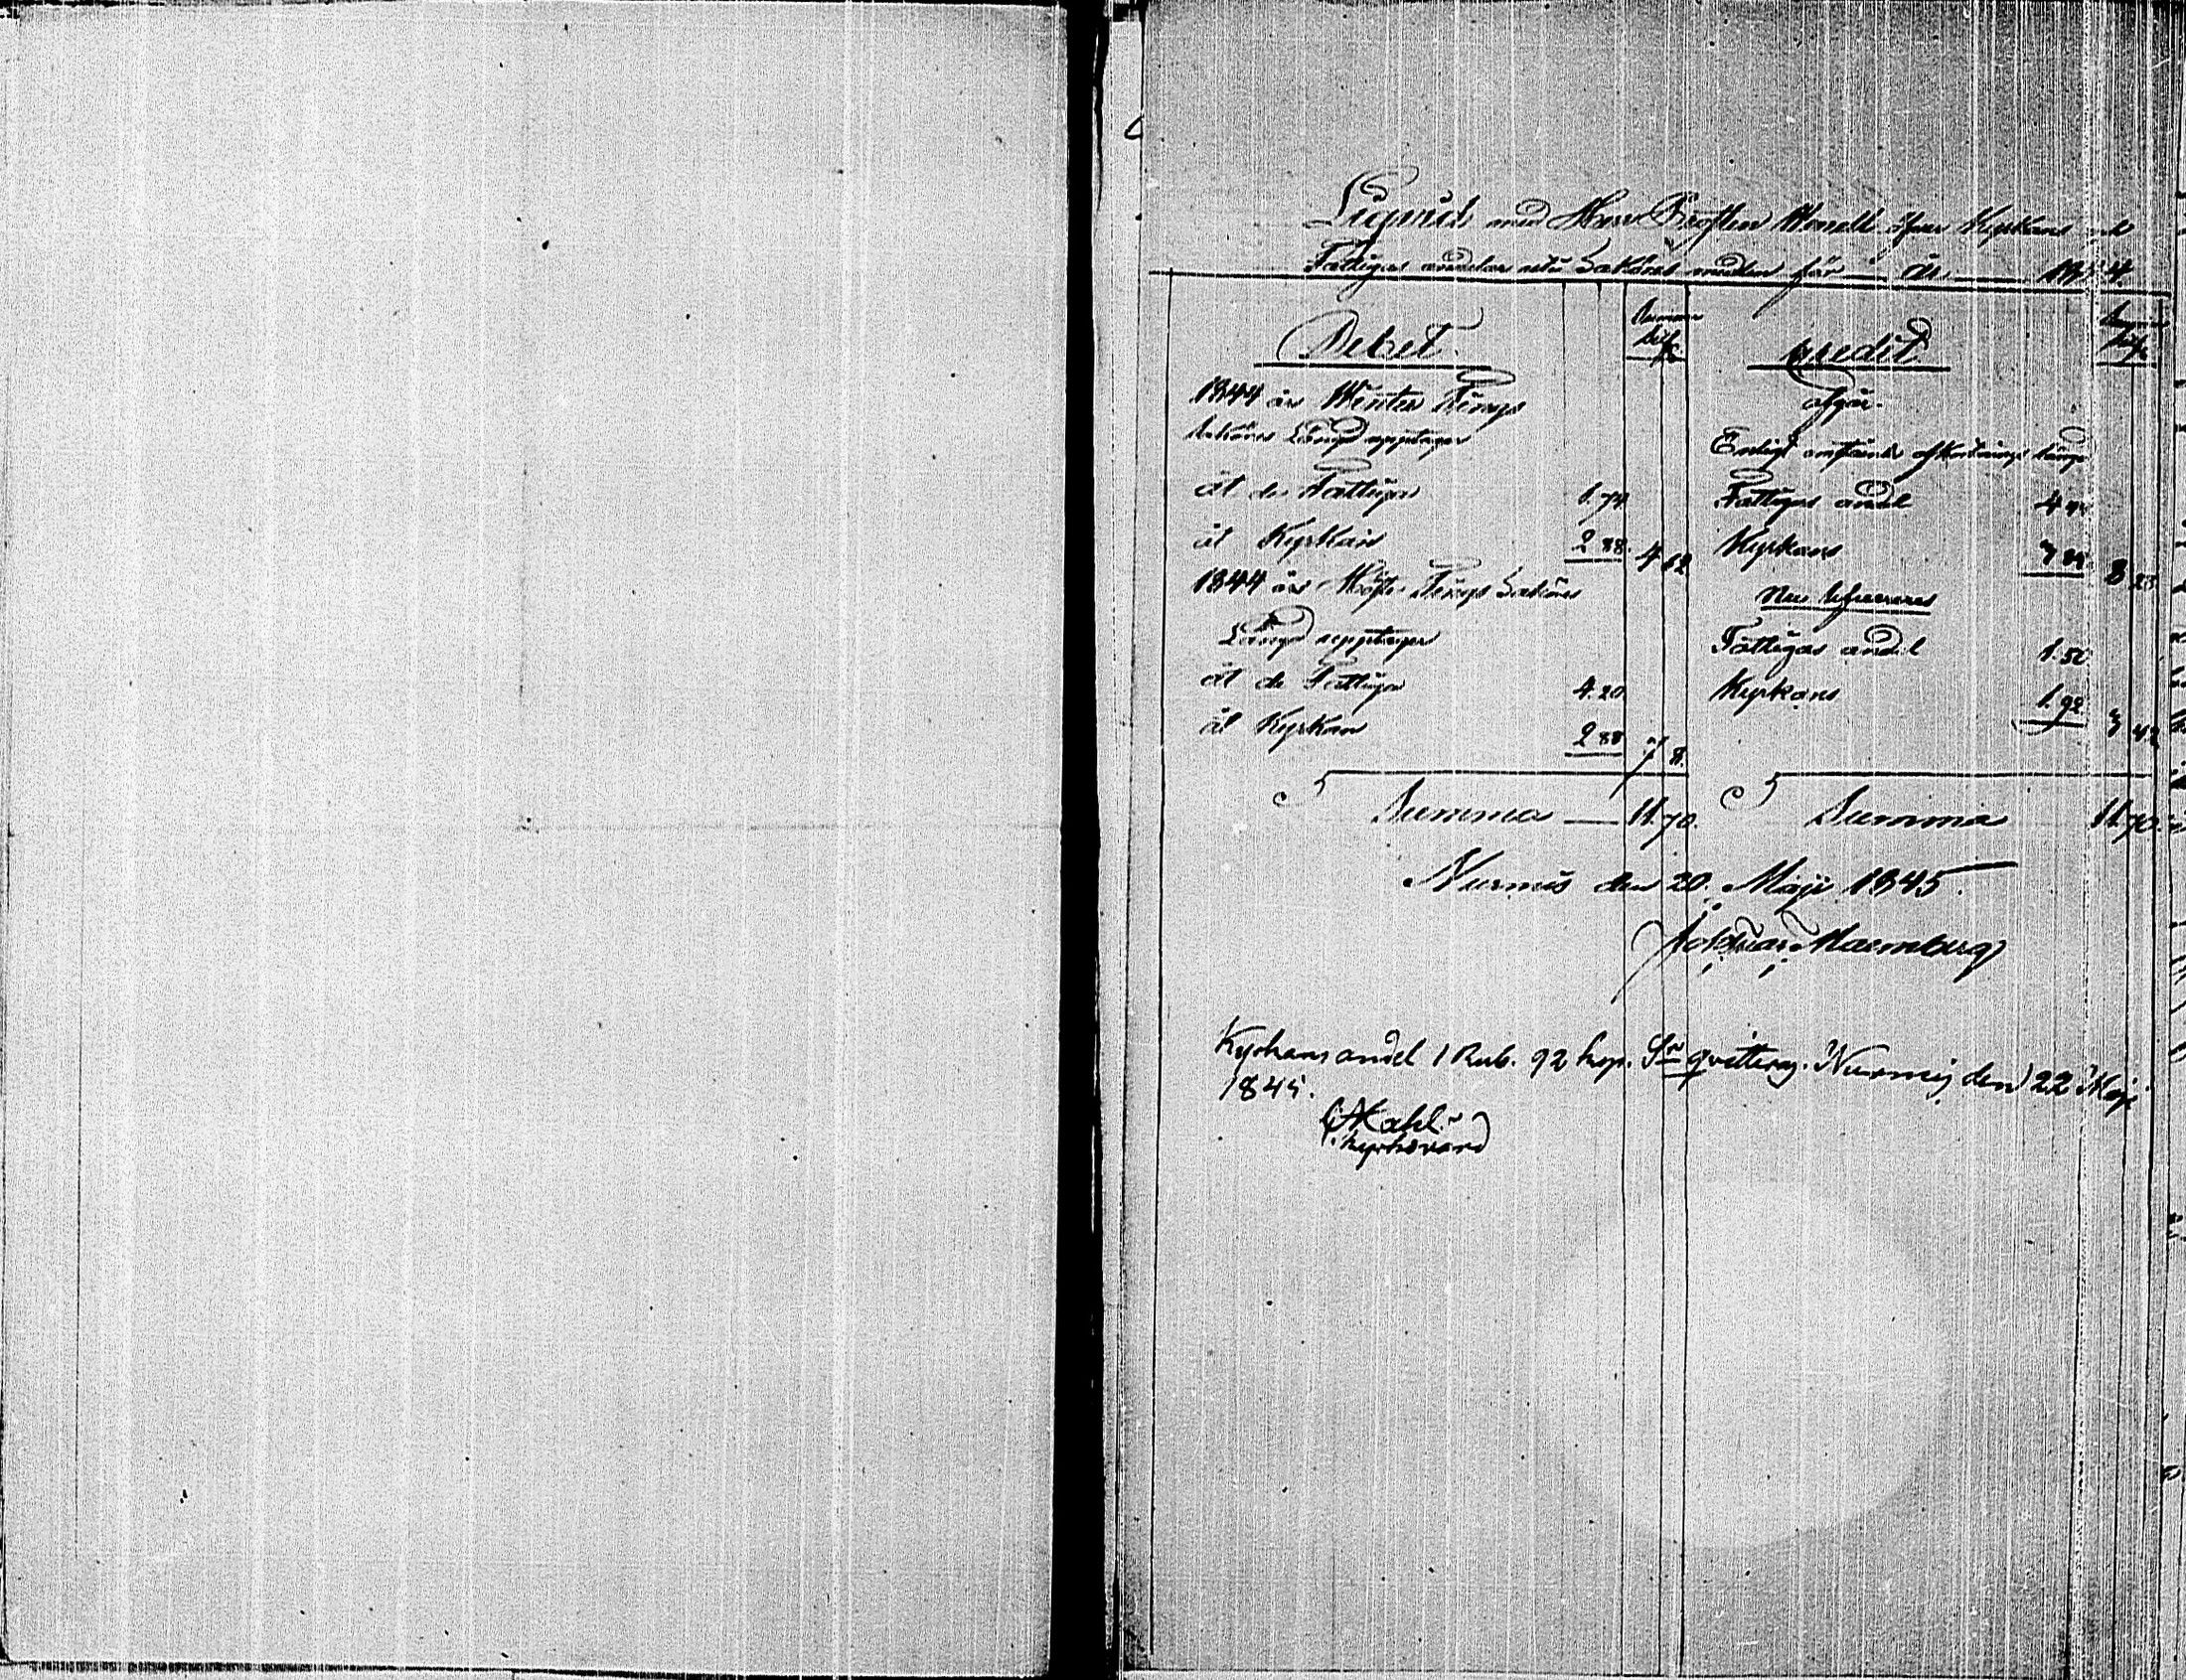 Liqvid med Herr Prosten Wenell öfver Kyrkans och
Fattigas andelar uti Saköres medlen för år 1844.
Debet
Summa
Silfv.
1844 års Winter Tings
Saköres Längd upptager
åt de Fattiga 1.74
åt Kyrkan 2 88. 4 62
1844 års Höste Tings Saköres
Längd upptager
åt de Fattiga 4.20
åt Kyrkan 2 88 7 8.
Summa — 11 70.
Credit
Summa
Silfv.
afgår.
Enligt afkortnings längd
Fattigas andel 4 44
Kyrkans 3 84 8 28
Nu levereres
Fattigas andel 1.50
Kyrkans 1.92 3 42
Summa 11 70.
Nurmis den 20. Maji 1845.
Kyrkans andel 1 Rub. 92 kop. Sr qvitteras. Nurmis den 22 Maji
1845.
Kyrkovärd